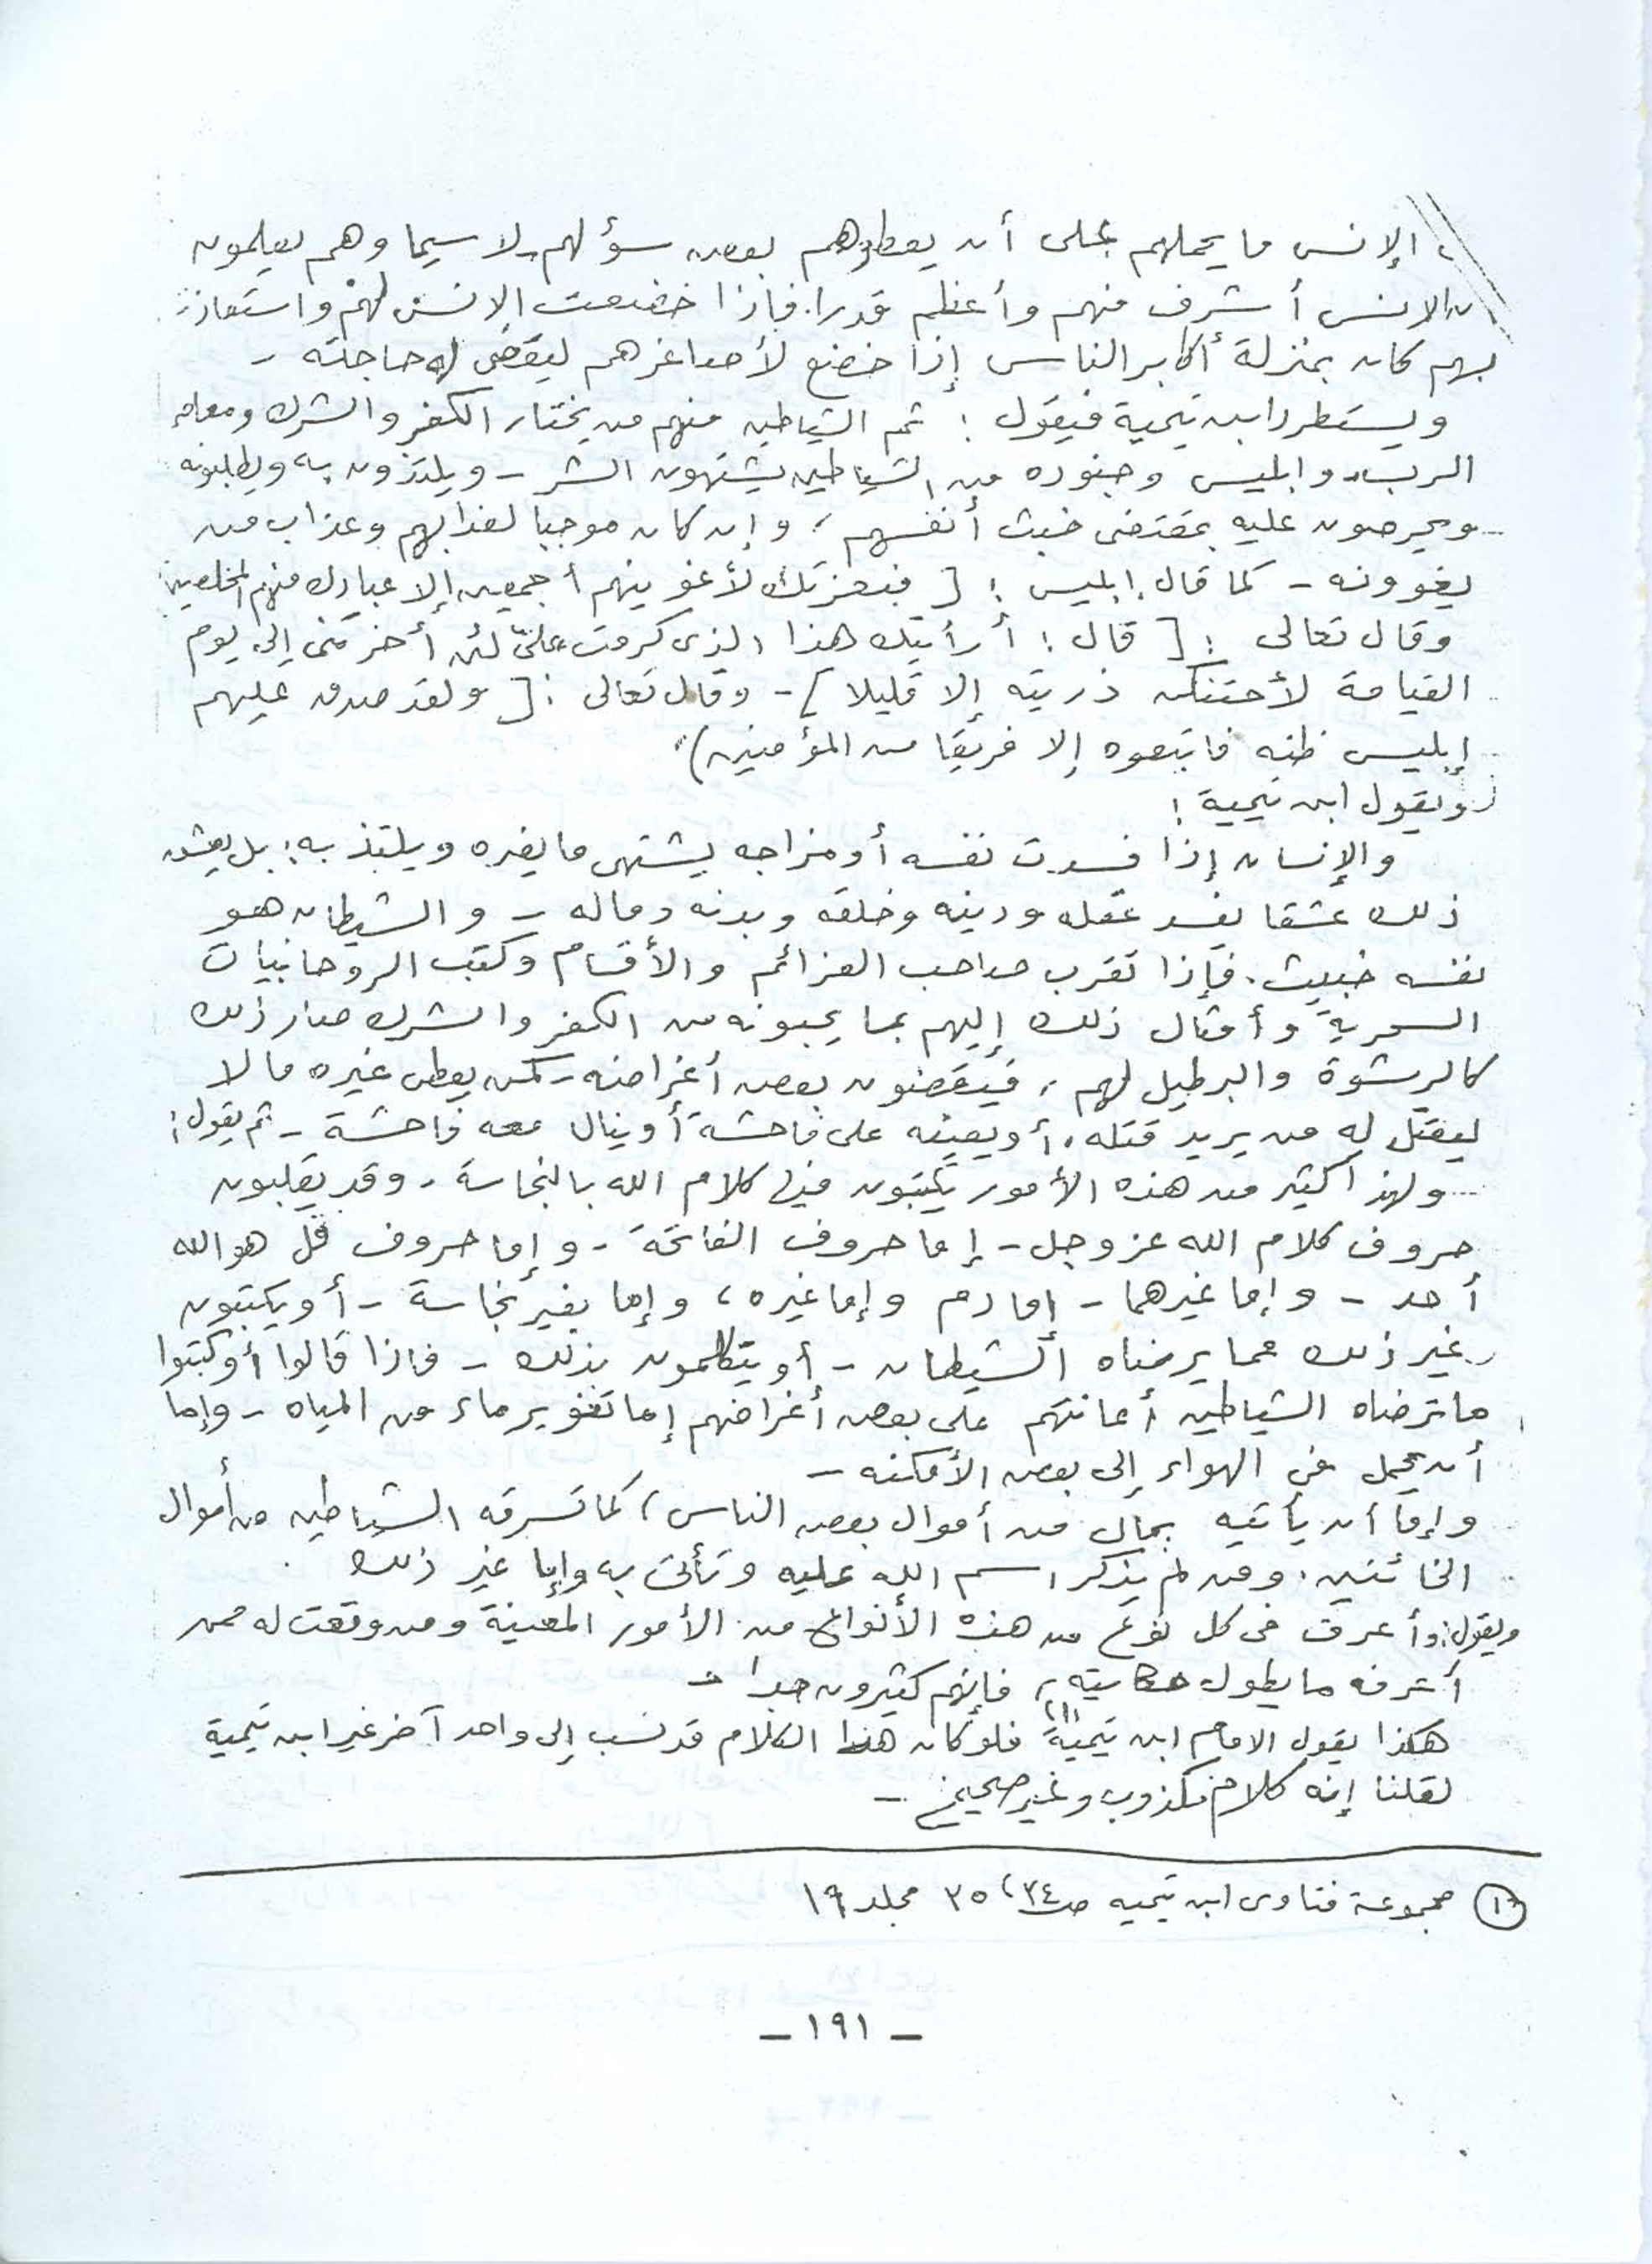 الإنس ما يحملهم على أن يعطوهم بعض سؤلهم - لا سيما وهم يعلمون
ن الانس أشرف منهم وأعظم قدرا. فإذا خضعت الإنس لهم واستعاذت
بهم كان بمنزلة أكابر الناس إذا خضع لأصاغرهم ليقضى له حاجته -
ويستطرد ابن تيمية فيقول : ثم الشياطين منهم من يختار الكفر والشرك ومعاصى
الرب، وابليس وجنوده من الشياطين يشتهون الشر - ويلتذون به ويطلبونه
ويحرصون عليه بمقتضى خبث أنفسهم ، وإن كان موجبا لعذابهم وعذاب من
يغوونه - كما قال ابليس : [ فبعزتك لأغوينهم أجمعين إلا عبادك منهم المخلصين
وقال تعالى : [ قال : أرأيتك هذا الذى كرمت علىّ لئن أخرتنى إلى يوم
القيامة لأحتنكن ذريته إلا قليلا ] - وقال تعالى : [ ولقد صدق عليهم
إبليس ظنه فاتبعوه إلا فريقا من المؤمنين )"
ويقول ابن تيمية :
والإنسان إذا فسدت نفسه أو مزاجه يشتهى ما يضره ويلتذ به ; بل يعشق
ذلك عشقا يفسد عقله ودينه وخلقه وبدنه وماله - والشيطان هو
نفسه خبيث . فإذا تقرب صاحب العزائم والأقسام وكتب الروحانيات
السحرية وأمثال ذلك إليهم بما يحبونه من الكفر والشرك صار ذلك
كالرشوة والبرطيل لهم ، فيقضون بعض أغراضه - كمن يعطى غيره مالا
ليقتل له من يريد قتله ، أو يعينه على فاحشة أو ينال معه فاحشة - ثم يقول :
ولهذا كثير من هذه الأمور يكتبون فيها كلام الله بالنجاسة - وقد يقلبون
حروف كلام الله عز وجل - إما حروف الفاتحة - وإما حروف قل هو الله
أحد - وإما غيرهما - إما دم وإما غيره ، وإما بغير نجاسة - أو يكتبون
غير ذلك مما يرضاه الشيطان - أو يتكلمون بذلك - فإذا قالوا أو كتبوا
ما ترضاه الشياطين أعانتهم على بعض أغراضهم إما تغوير ماء من المياه - وإما
أن يحمل فى الهواء إلى بعض الأمكنه -
وإما أن يأتيه بمال من أموال بعض الناس ، كما تسرقه الشياطين من أموال
الخائنين ، ومن لم يذكر اسم الله عليه وتأتى به وإما غير ذلك
ويقول : وأعرف فى كل نوع من هذه الأنواع من الأمور المعينة ومن وقعت له ممن
أعرفه ما يطول حكايته ، فإنهم كثيرون جدا -
هكذا يقول الامام ابن تيمية (١) فلو كان هذا الكلام قد نسب إلى واحد آخر غير ابن تيمية
لقلنا إنه كلام مكذوب وغير صحيح -
(١) مجموعة فتاوى ابن تيميه ص ٣٤ ، ٣٥ مجلد ١٩
- ١٩١ -